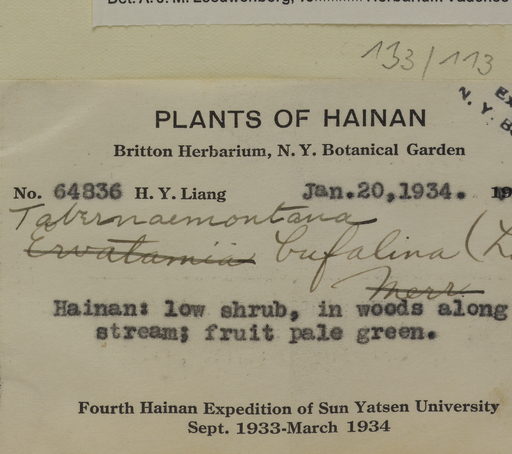 Det. A. J. M. Leeuwenberg, Herbarium Vadense
133/113
PLANTS OF HAINAN
N. Y. B
Britton Herbarium, N. Y. Botanical Garden
No. 64836 H. Y. Liang Jan.20,1934. 19
Tabernaemontana
Ervatamia bufalina (L
Merr.
Hainan: low shrub, in woods along
stream; fruit pale green.
Fourth Hainan Expedition of Sun Yatsen University
Sept. 1933-March 1934